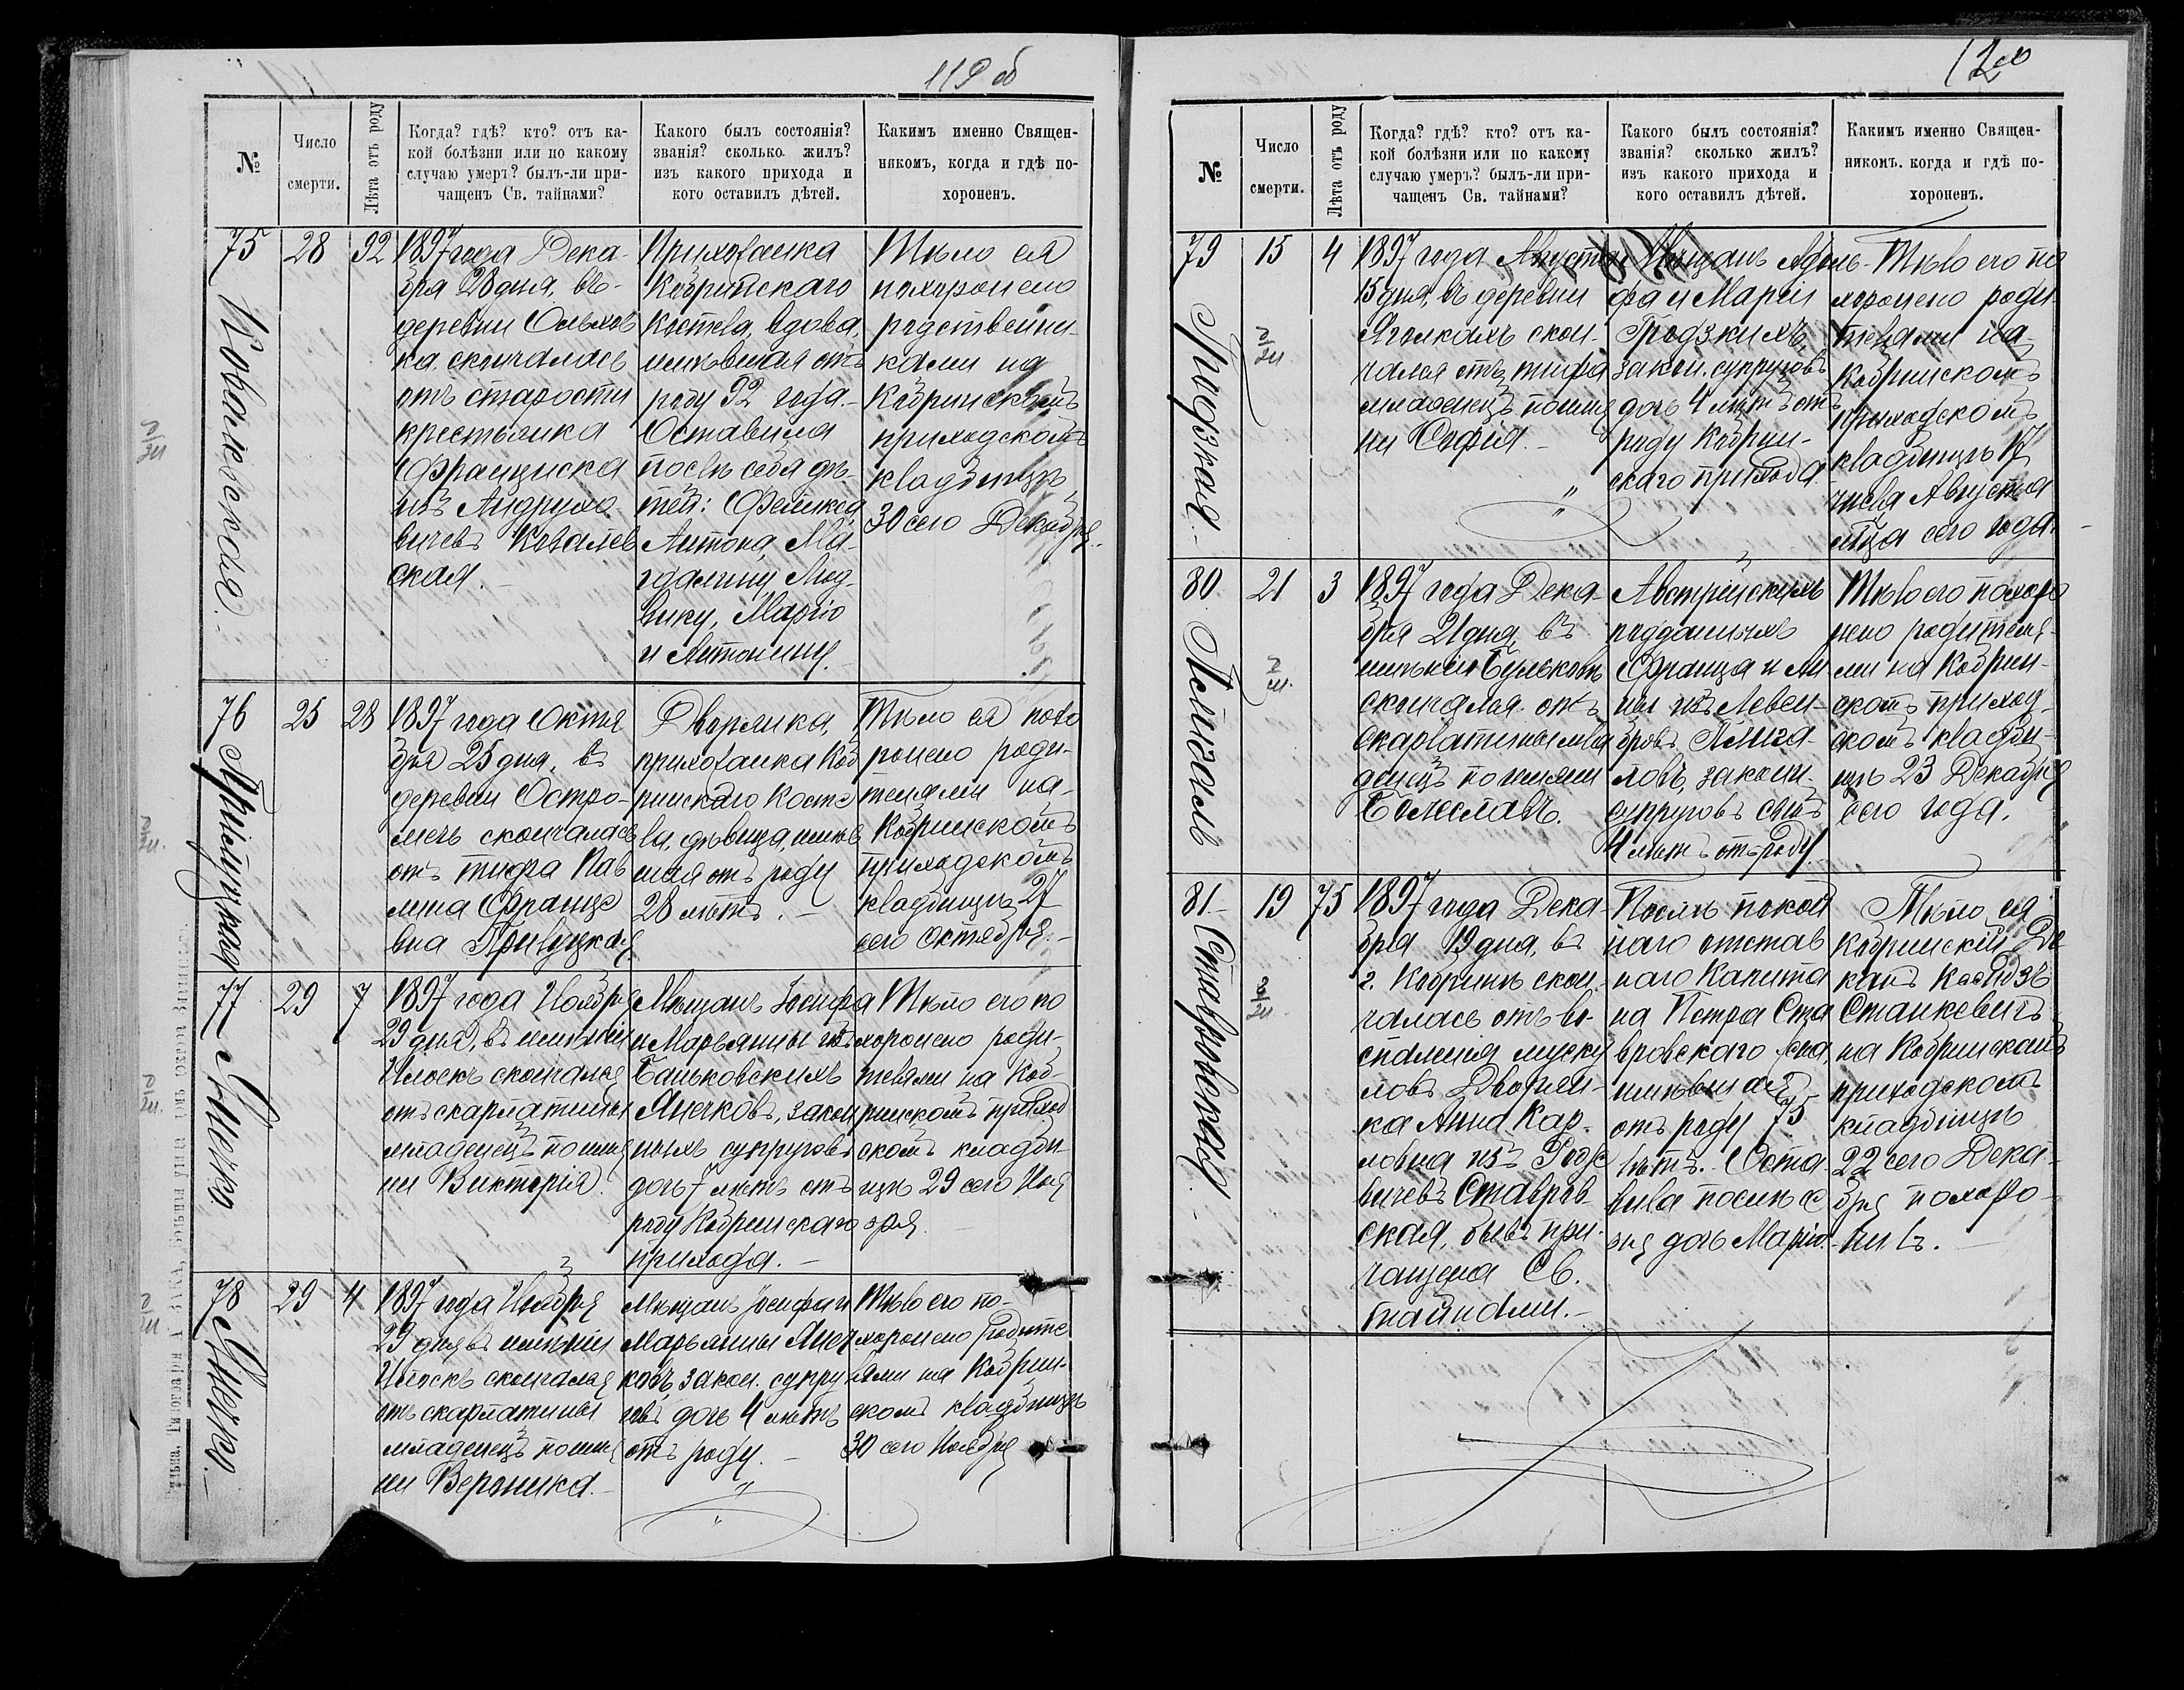 119 об
№
Число
смерти.
Лѣта отъ роду
Когда? гдѣ? кто? отъ ка-
кой болѣзни или по какому
случаю умеръ? былъ-ли при-
чащенъ Св. тайнами?
Какого былъ состоянія?
званія? сколько жилъ?
изъ какого прихода и
кого оставилъ дѣтей.
Какимъ именно Священ-
никомъ, когда и гдѣ по-
хороненъ.
75
Ковалевская.
28
92
1897 года Дека-
бря 28 дня, въ
деревни Ольхов
ка, скончалась
отъ старости
крестьянка
Франциска
изъ Андрухо
вичевъ Ковалев
ская.
Прихожанка
Кобринскаго
Костела, вдова,
имѣвшая отъ
роду 92 года.
Оставила
послѣ себя дѣ-
тей: Феликса,
Антона, Ма-
гдалину, Люд-
вику, Марію
и Антонину.
Тѣло ея
похоронено
родственни-
ками на
Кобринскомъ
приходскомъ
кладбищѣ
30 сего Декабря.
76
Прилуцкая
25
28
1897 года Октя
бря 25 дня, въ
деревни Остро-
мечь скончалась
отъ тифа Пав
лина Францо
вна Прилуцкая
Дворянка,
прихожанка Коб
ринскаго Косте
ла, дѣвица, имѣв
шая отъ роду
28 лѣтъ.
Тѣло ея похо
ронено роди-
телями на
Кобринскомъ
приходскомъ
кладбищѣ 27
сего Октября.
77
Янечко
29
7
1897 года Ноября
29 дня, въ имѣніи
Илоскъ скончался
отъ скарлатины
младенецъ по име
ни Викторія.
Мѣщанъ Іосифа
и Марьянны изъ
Баньковскихъ
Янечковъ, закон
ныхъ супруговъ
дочь 7 лѣтъ отъ
роду Кобринскаго
прихода.
Тѣло его по
хоронено роди-
телями на Коб-
ринскомъ приход
скомъ кладби
щѣ 29 сего Ноя
бря.
78
Янечко.
29
4
1897 года Ноября
29 дня въ имѣніи
Илоскъ скончался
отъ скарлатины
младенецъ по име
ни Вероника.
Мѣщанъ Іосифа и
Марьянны Янеч
ковъ закон. супру
говъ дочь 4 лѣтъ
отъ роду.
Тѣло его по-
хоронено родите
лями на Кобрин-
скомъ кладбищѣ
30 сего Ноября
120
№
Число
смерти.
Лѣта отъ роду
Когда? гдѣ? кто? отъ ка-
кой болѣзни или по какому
случаю умеръ? былъ-ли при-
чащенъ Св. тайнами?
Какого былъ состоянія?
званія? сколько жилъ?
изъ какого прихода и
кого оставилъ дѣтей.
Какимъ именно Священ-
никомъ. когда и гдѣ по-
хороненъ.
79
Гродзкая.
15
4
1897 года Августа
15 дня, въ деревни
Яголкахъ скон-
чался отъ тифа
младенецъ по име
ни Софія.
Мѣщанъ Адоль-
фа и Маріи
Гродзкихъ,
закон. супруговъ
дочь 4 лѣтъ отъ
роду Кобрин-
скаго прихода.
Тѣло его по
хоронено роди
телями на
Кобринскомъ
приходскомъ
кладбищѣ 17
числа Августа
м-ца сего года.
80
21
3
1897 года Дека-
бря 21 дня, въ
имѣніи
скончался отъ
скарлатины мла
денецъ по имени
Болеславъ.
Австрійскихъ
подданныхъ
Франца и Ан
ны изъ Левен-
законн.
супруговъ сынъ
4 лѣтъ отъ роду.
Тѣло его похоро
нено родителя-
ми на Кобрин-
скомъ приход-
скомъ кладби-
щѣ 23 Декабря
сего года.
81
Ставровская.
19
75
1897 года Дека-
бря 19 дня, въ
г. Кобринѣ скон-
чалась отъ во-
спаленія муску
ловъ Дворян-
ка Анна Кар-
ловна изъ Родзе
вичевъ Ставров
ская, бывъ при-
чащена Св.
тайнами.
Послѣ покой
наго отстав
наго Капита
на Петра Ста
вровскаго
имѣвшая
отъ роду 75
лѣтъ. Оста-
вила послѣ се
бя дочь Марію.
Тѣло ея
Кобринскій Де
канъ Ксендзъ
Станкевичъ
на Кобринскомъ
приходскомъ
кладбищѣ
22 сего Дека-
бря похоро-
нилъ.